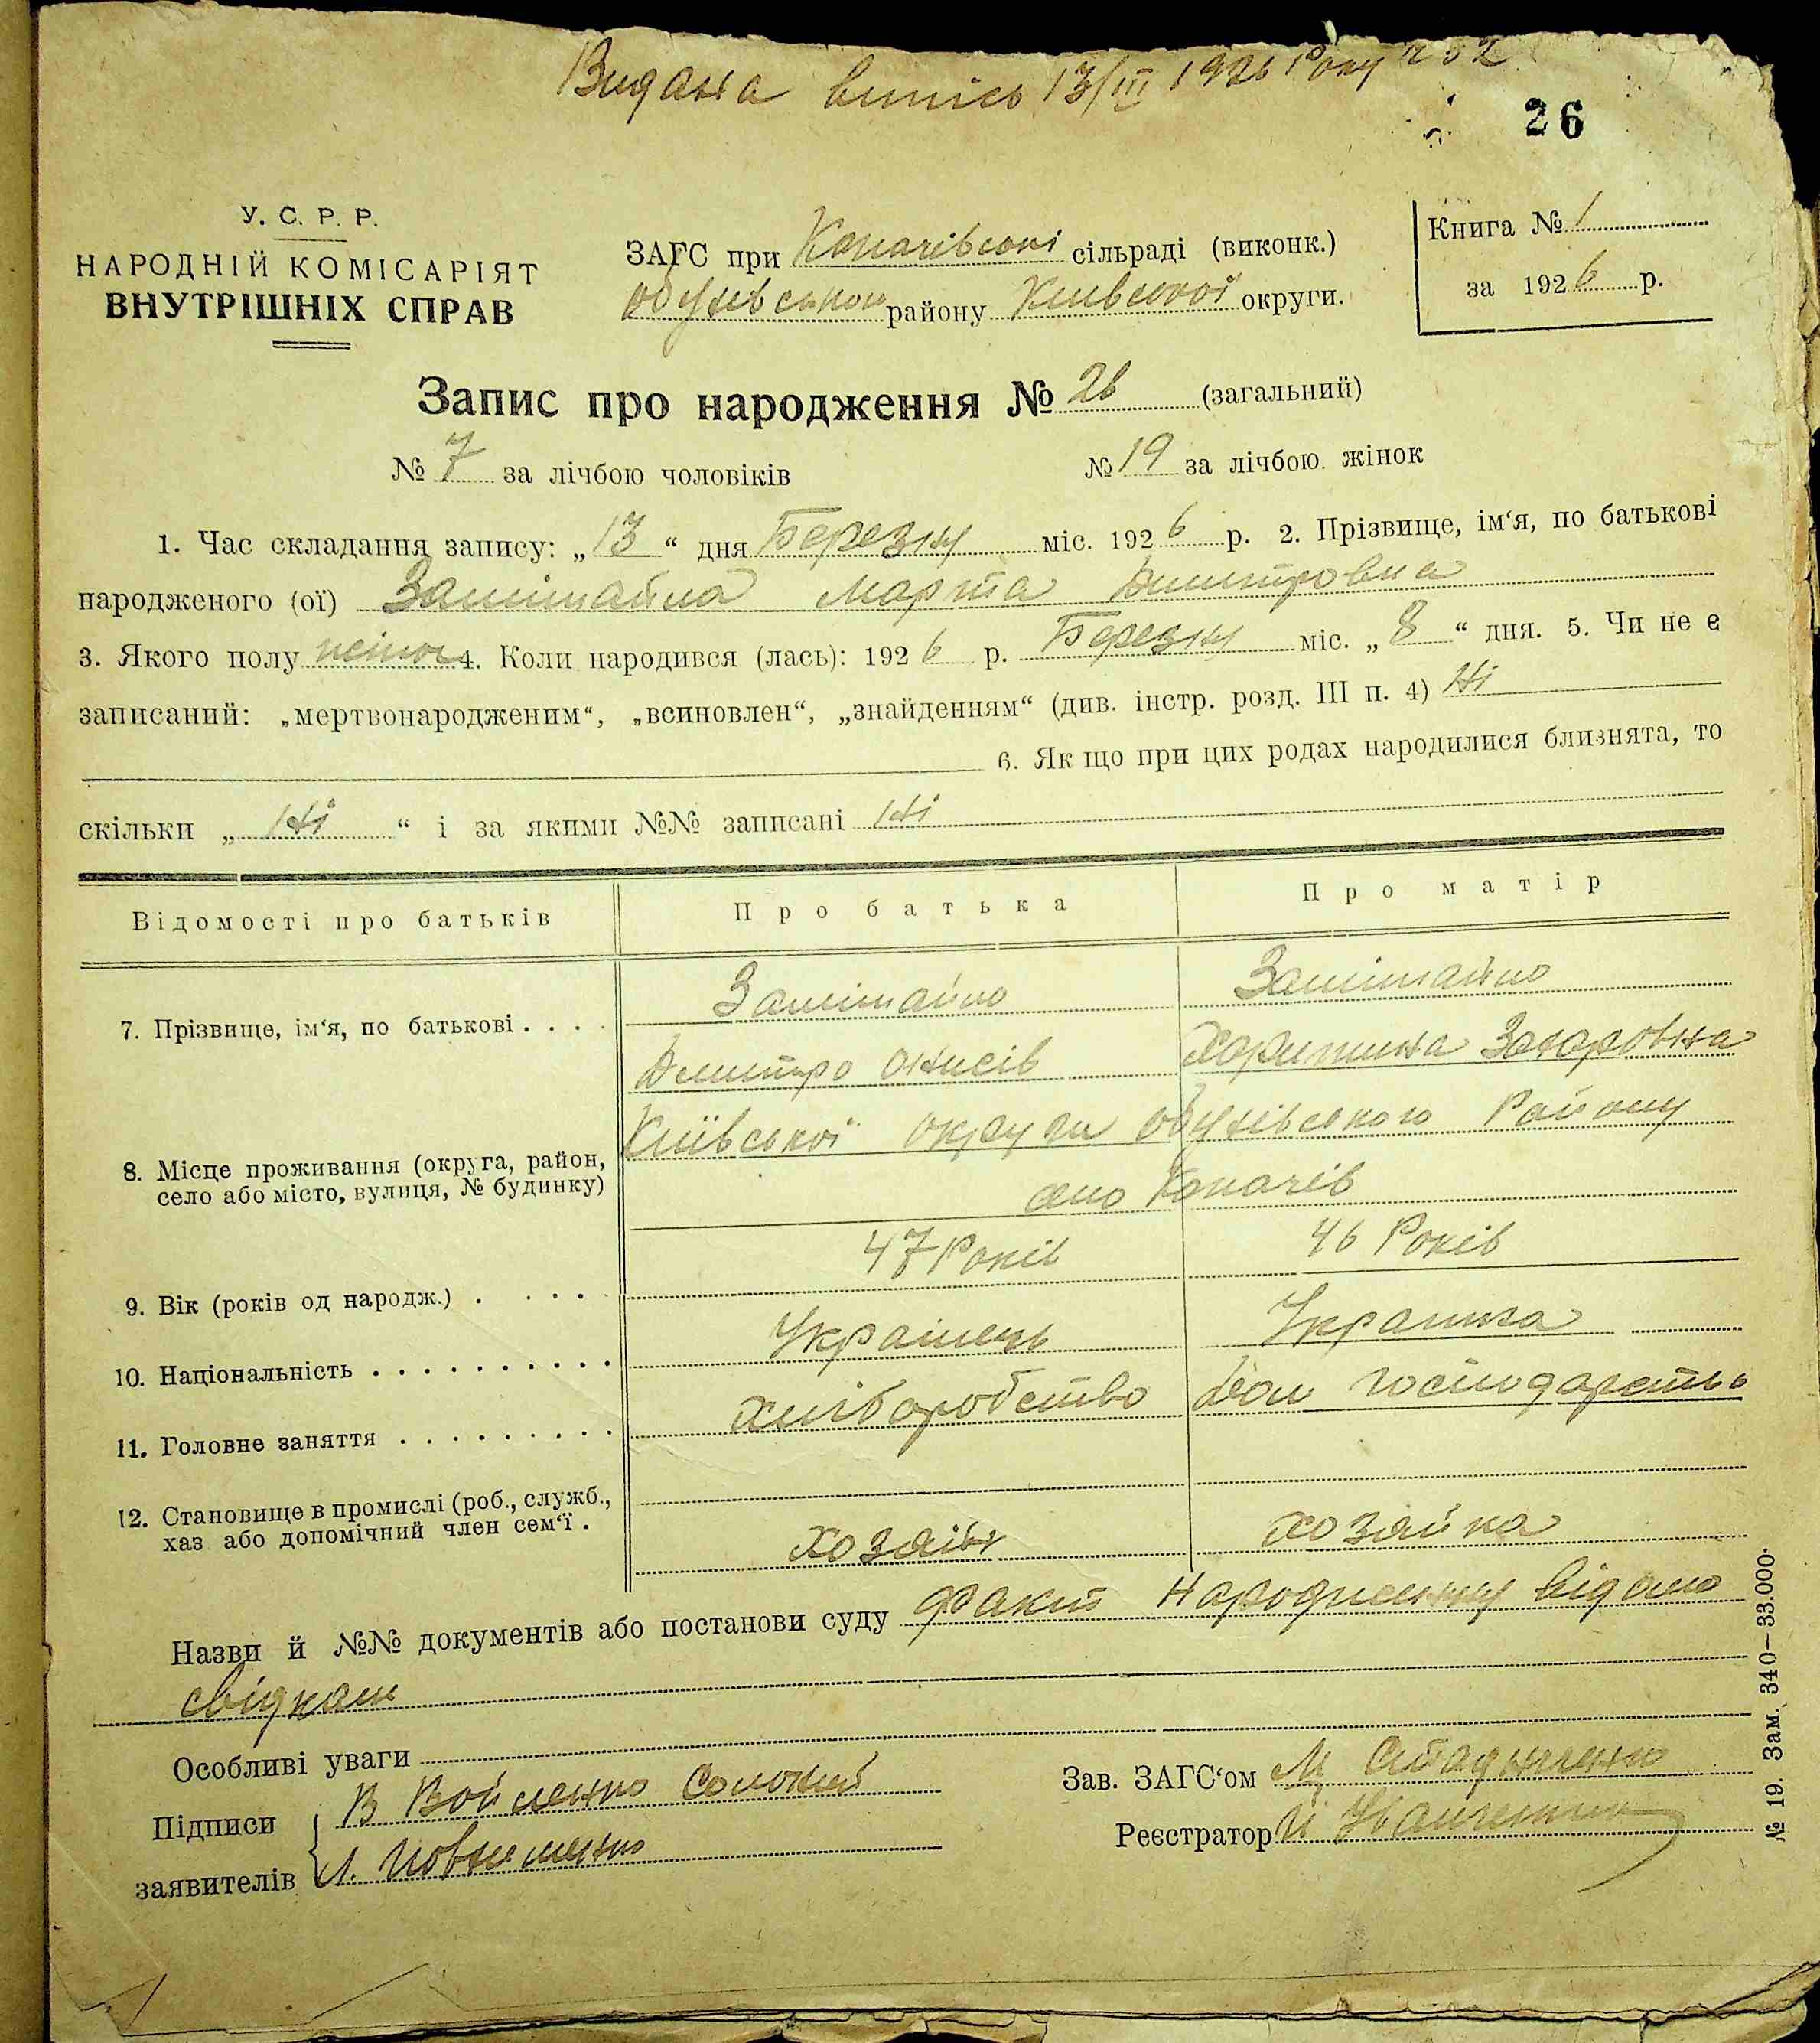 Видана випісь 13/III 1926 Року № 52
26
У. С. Р. Р.
НАРОДНІЙ КОМІСАРІЯТ
ВНУТРІШНІХ СПРАВ
ЗАГС при Копачівські сільраді (виконк.)
Обухівського району Київської округи.
Книга № 1
за 1926 р.
Запис про народження № 26 (загальний)
№ 7 за лічбою чоловіків № 19 за лічбою жінок
1. Час складання запису: „13“ дня Березня міс. 1926 р. 2. Прізвище, ім‘я, по батькові
народженого (ої) Марта Дмитровна
3. Якого полу жіноч 4. Коли народився (лась): 1926 р. Березня міс. „8“ дня. 5. Чи не є
записаний: „мертвонародженим“, „всиновлен“, „знайденням“ (див. інстр. розд. III п. 4) Ні
6. Як що при цих родах народилися близнята, то
скільки „ Ні “ і за якими №№ записані Ні
Відомості про батьків Про батька Про матір
7. Прізвище, ім‘я, по батькові . . . .
Дмитро Онисів Харитина Захаровна
8. Місце проживання (округа, район,
село або місто, вулиця, № будинку)
Київської округи Обухівського Району
село Копачів
9. Вік (років од народж.) . . . . 47 Років 46 Років
10. Національність . . . . . . . . . . Українець Українка
11. Головне заняття . . . . . . . . . хліборобство Дом господарство
12. Становище в промислі (роб., служб.,
хаз або допомічний член сем‘ї . хозяін хозяйка
Назви й №№ документів або постанови суду Факт народження відомо
свідкам
Особливі уваги
Підписи
заявителів
В Войленко
Зав. ЗАГС‘ом
Реєстратор
№ 19. Зам. 340—33.000.